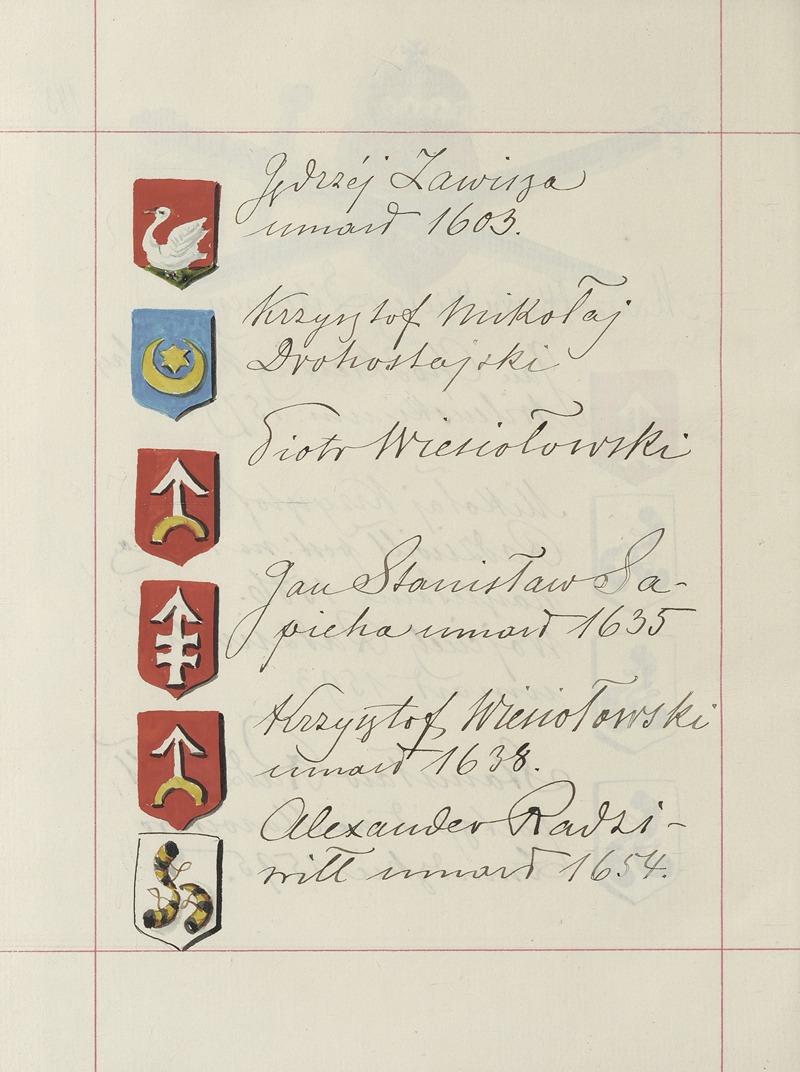 Jędrzéj Zawisza
umarł 1603.
Krzysztof Mikołaj
Drohostajski
Piotr Wiesiołowski
Jan Stanisław Sa-
pieha umarł 1635
Krzysztof Wiesiołowski
umarł 1638.
Alexander Radzi-
wiłł umarł 1654.